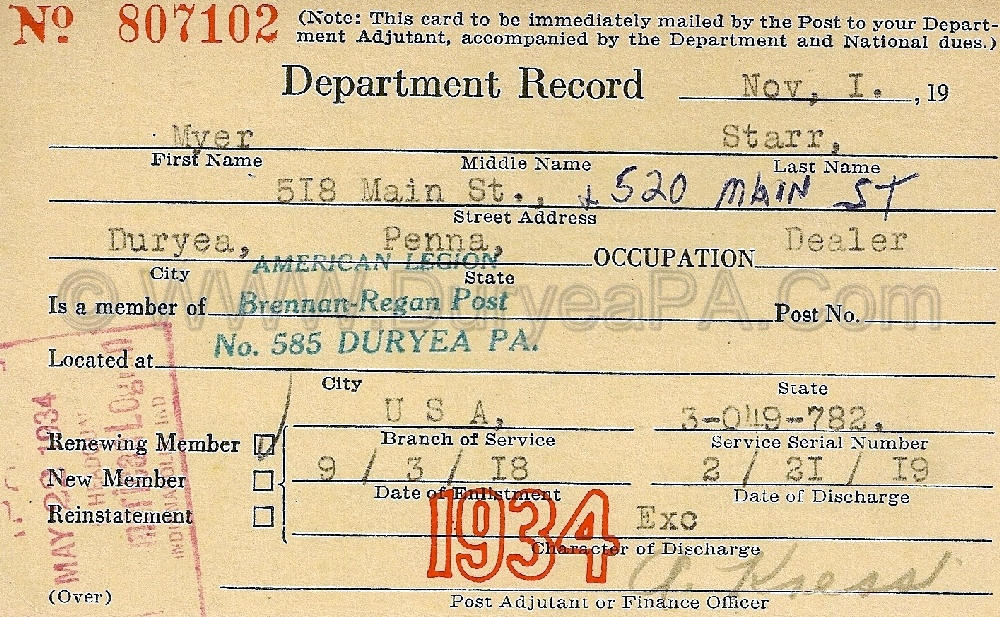 No 807102 (Note: This card to be immediately mailed by the Post to your Depart-
ment Adjutant, accompanied by the Department and National dues.)
Department Record Nov, I. , 19
Myer Starr,
First Name Middle Name Last Name
5I8 Main St., & 520 MAIN ST
Street Address
Duryea, Penna, OCCUPATION Dealer
City State
AMERICAN LEGION
Is a member of Brennan-Regan Post Post No.
Located at No. 585 DURYEA PA.
City State
© WWW.DuryeaPA.Com
U S A, 3-049-782,
Renewing Member Branch of Service Service Serial Number
New Member 9 / 3 / I8 2 / 2I / I9
Date of Enlistment Date of Discharge
Reinstatement Exc
1934
Character of Discharge
MAY 29 1934
(Over)
Post Adjutant or Finance Officer